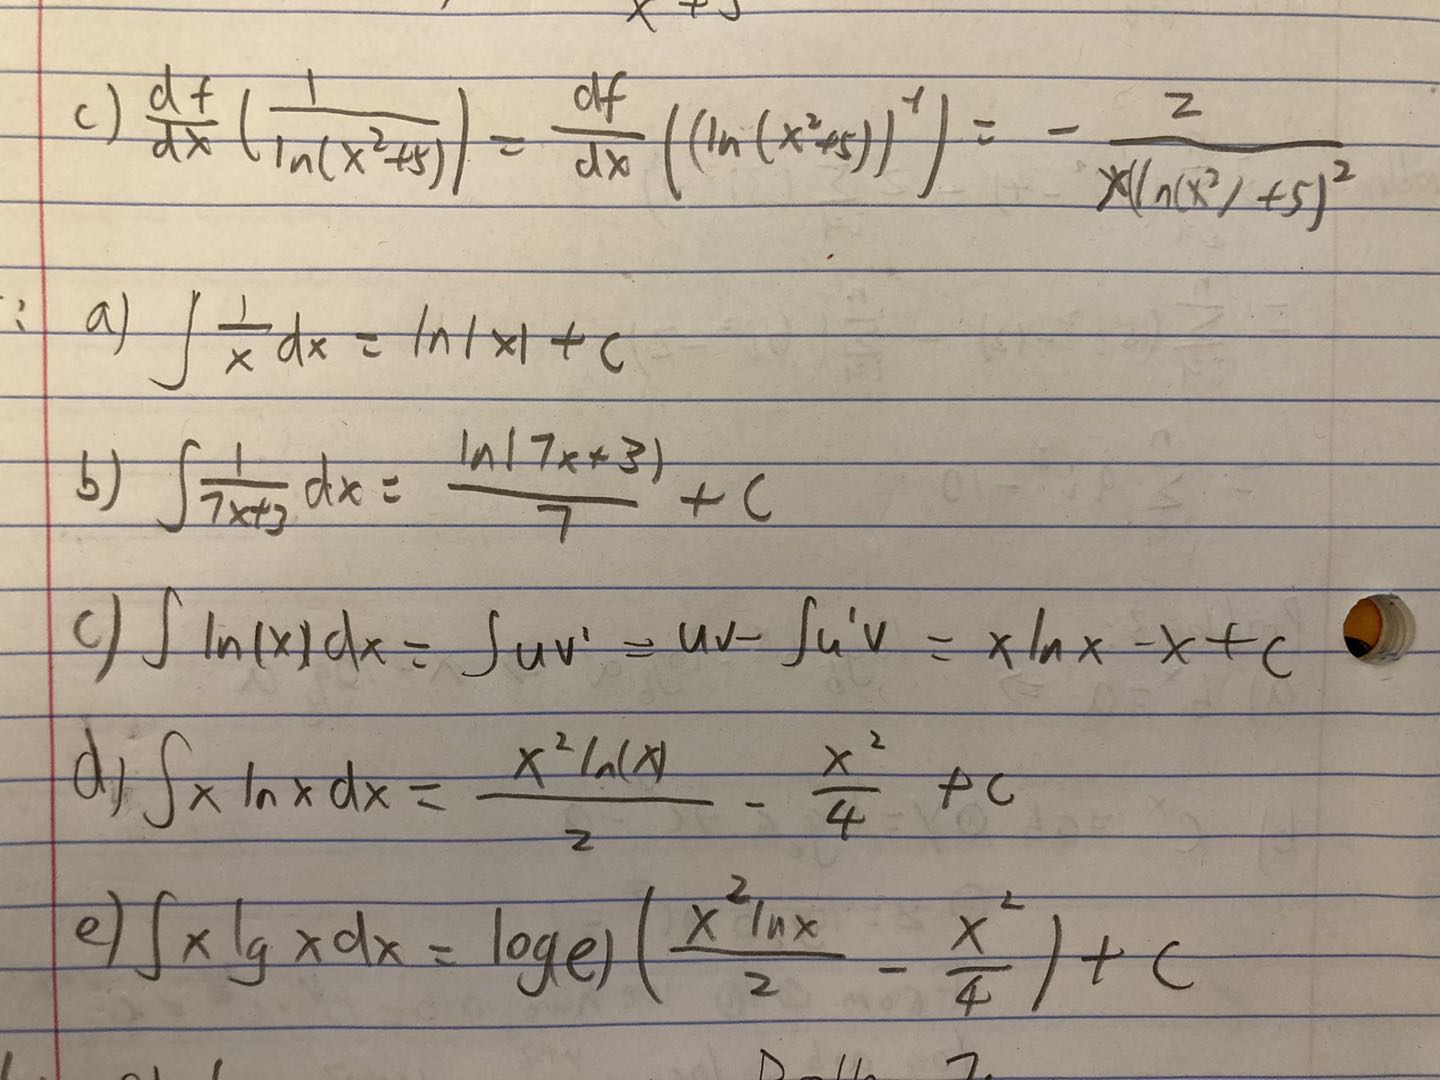 x + 5
c) df/dx (1/ln(x²+5)) = df/dx ((ln(x²+5))⁻¹) = - 2/x(ln(x²)+5)²
: a) ∫ 1/x dx = ln|x| + c
b) ∫ 1/7x+3 dx = ln|7x+3)/7 + C
c) ∫ ln(x) dx = ∫uv' = uv - ∫u'v = x ln x - x + c
d) ∫ x ln x dx = x² ln(x)/2 - x²/4 + c
e) ∫ x lg x dx = log(e) (x² ln x/2 - x²/4) + C